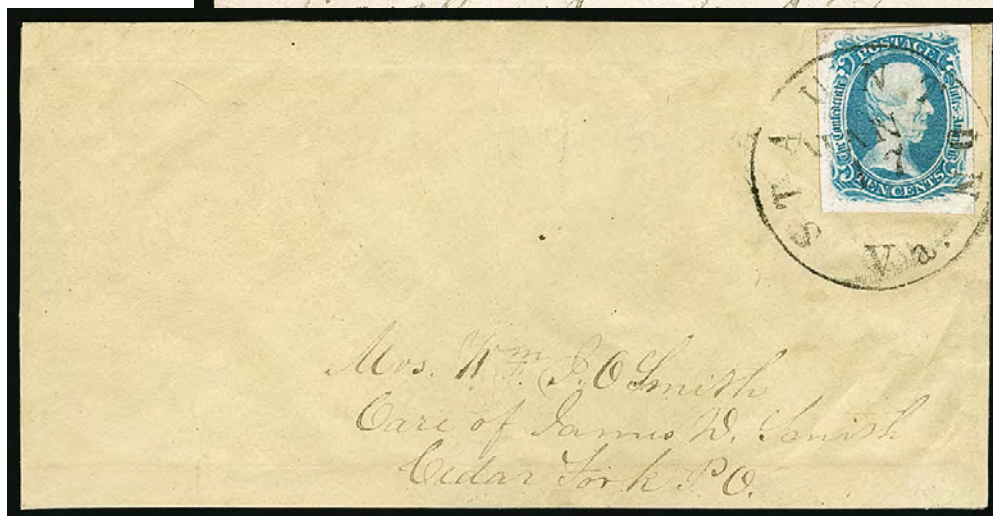 POSTAGE
The Confederate States of America
TEN CENTS
STAUNTON
JAN
7
Va.
Mrs. Wm. P. O Smith
Care of James W. Smith
Cedar Fork P.O.